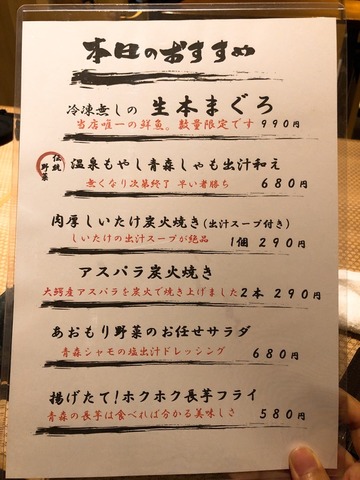 本日のおすすめ
冷凍無しの 生本まぐろ
当店唯一の鮮魚。数量限定です 990円
伝統野菜 温泉もやし青森しゃも出汁和え
無くなり次第終了 早い者勝ち 680円
肉厚しいたけ炭火焼き(出汁スープ付き)
しいたけの出汁スープが絶品 1個 290円
アスパラ炭火焼き
大鰐産アスパラを炭火で焼き上げました 2本 290円
あおもり野菜のお任せサラダ
青森シャモの塩出汁ドレッシング 680円
揚げたて!ホクホク長芋フライ
青森の長芋は食べれば分かる美味しさ 580円